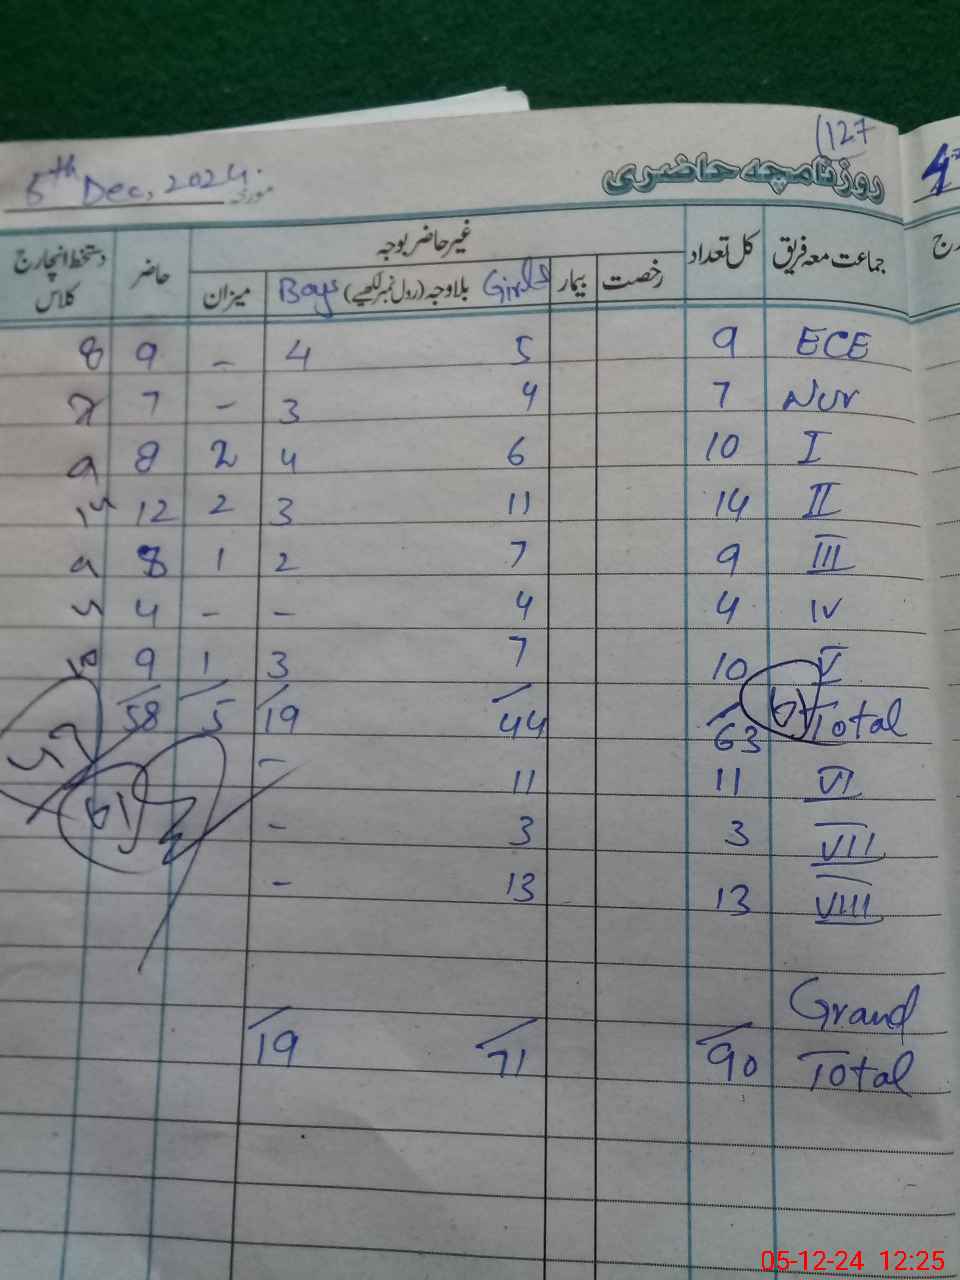 127
روزنامچہ حاضری
5th Dec, 2024. مورخہ
جماعت معہ فریق کل تعداد غیر حاضر بوجہ حاضر دستخط انچارج کلاس
رخصت بیمار Girls بلاوجہ (رول نمبر لکھیے) Boys میزان
ECE 9 5 4 - 9 8
Nur 7 4 3 - 7
I 10 6 4 2 8 9
II 14 11 3 2 12
III 9 7 2 1 8 9
IV 4 4 - - 4
V 10 7 3 1 9 10
Total 63 44 19 5 58
VI 11 11 -
VII 3 3 -
VIII 13 13 -
Grand
Total 90 71 19
05-12-24 12:25